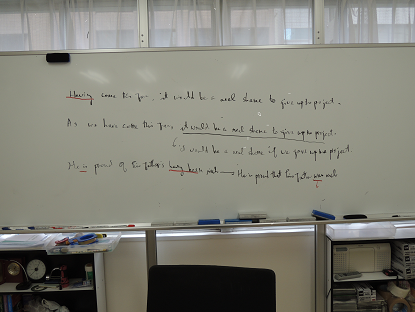 Having come this far, it would be a real shame to give up the project.
As we have come this far, it would be a real shame to give up the project.
it would be a real shame if we gave up the project.
He is proud of his father's having been → He is proud that his father was